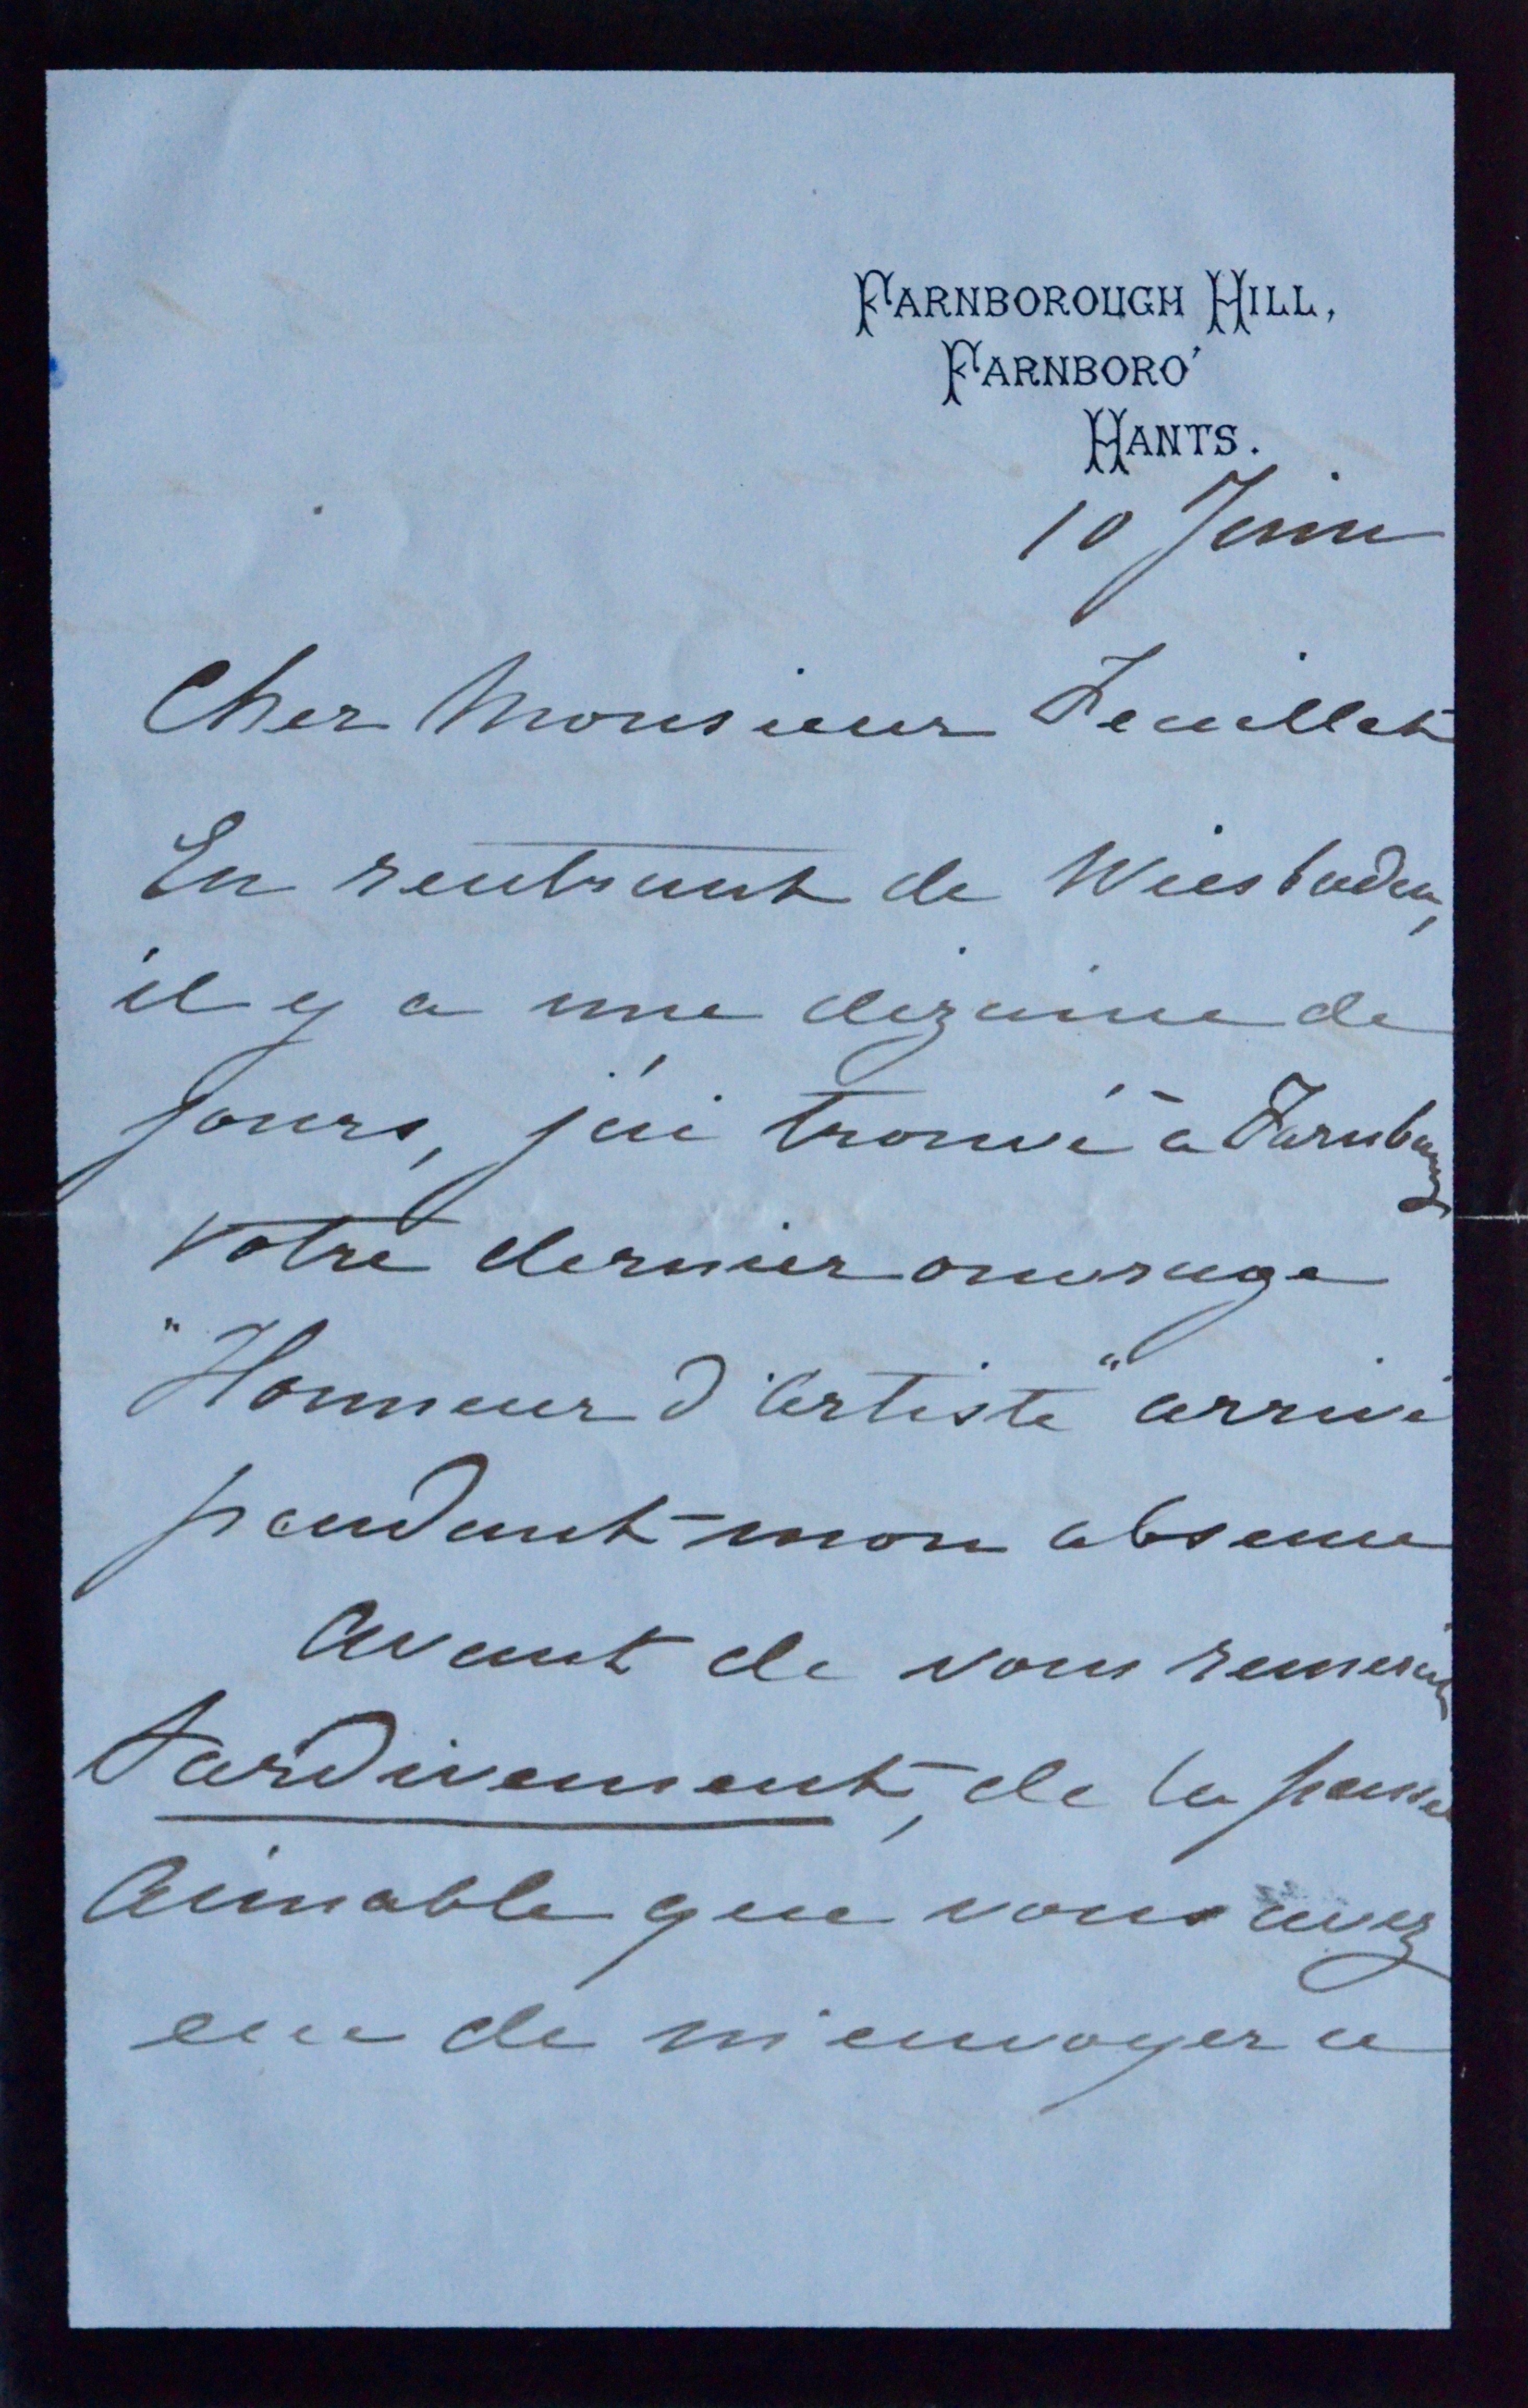 FARNBOROUGH HILL,
FARNBORO'
HANTS.
10 Juin
Cher Monsieur Feuillet
En rentrant de Wiesbaden,
il y a une dizaine de
jours, j'ai trouvé à Farnborough
votre dernier ouvrage
"Honneur d'Artiste" arrivé
pendant mon absence
Avant de vous remercier
tardivement, de la pensée
aimable que vous avez
eue de m'envoyer ce